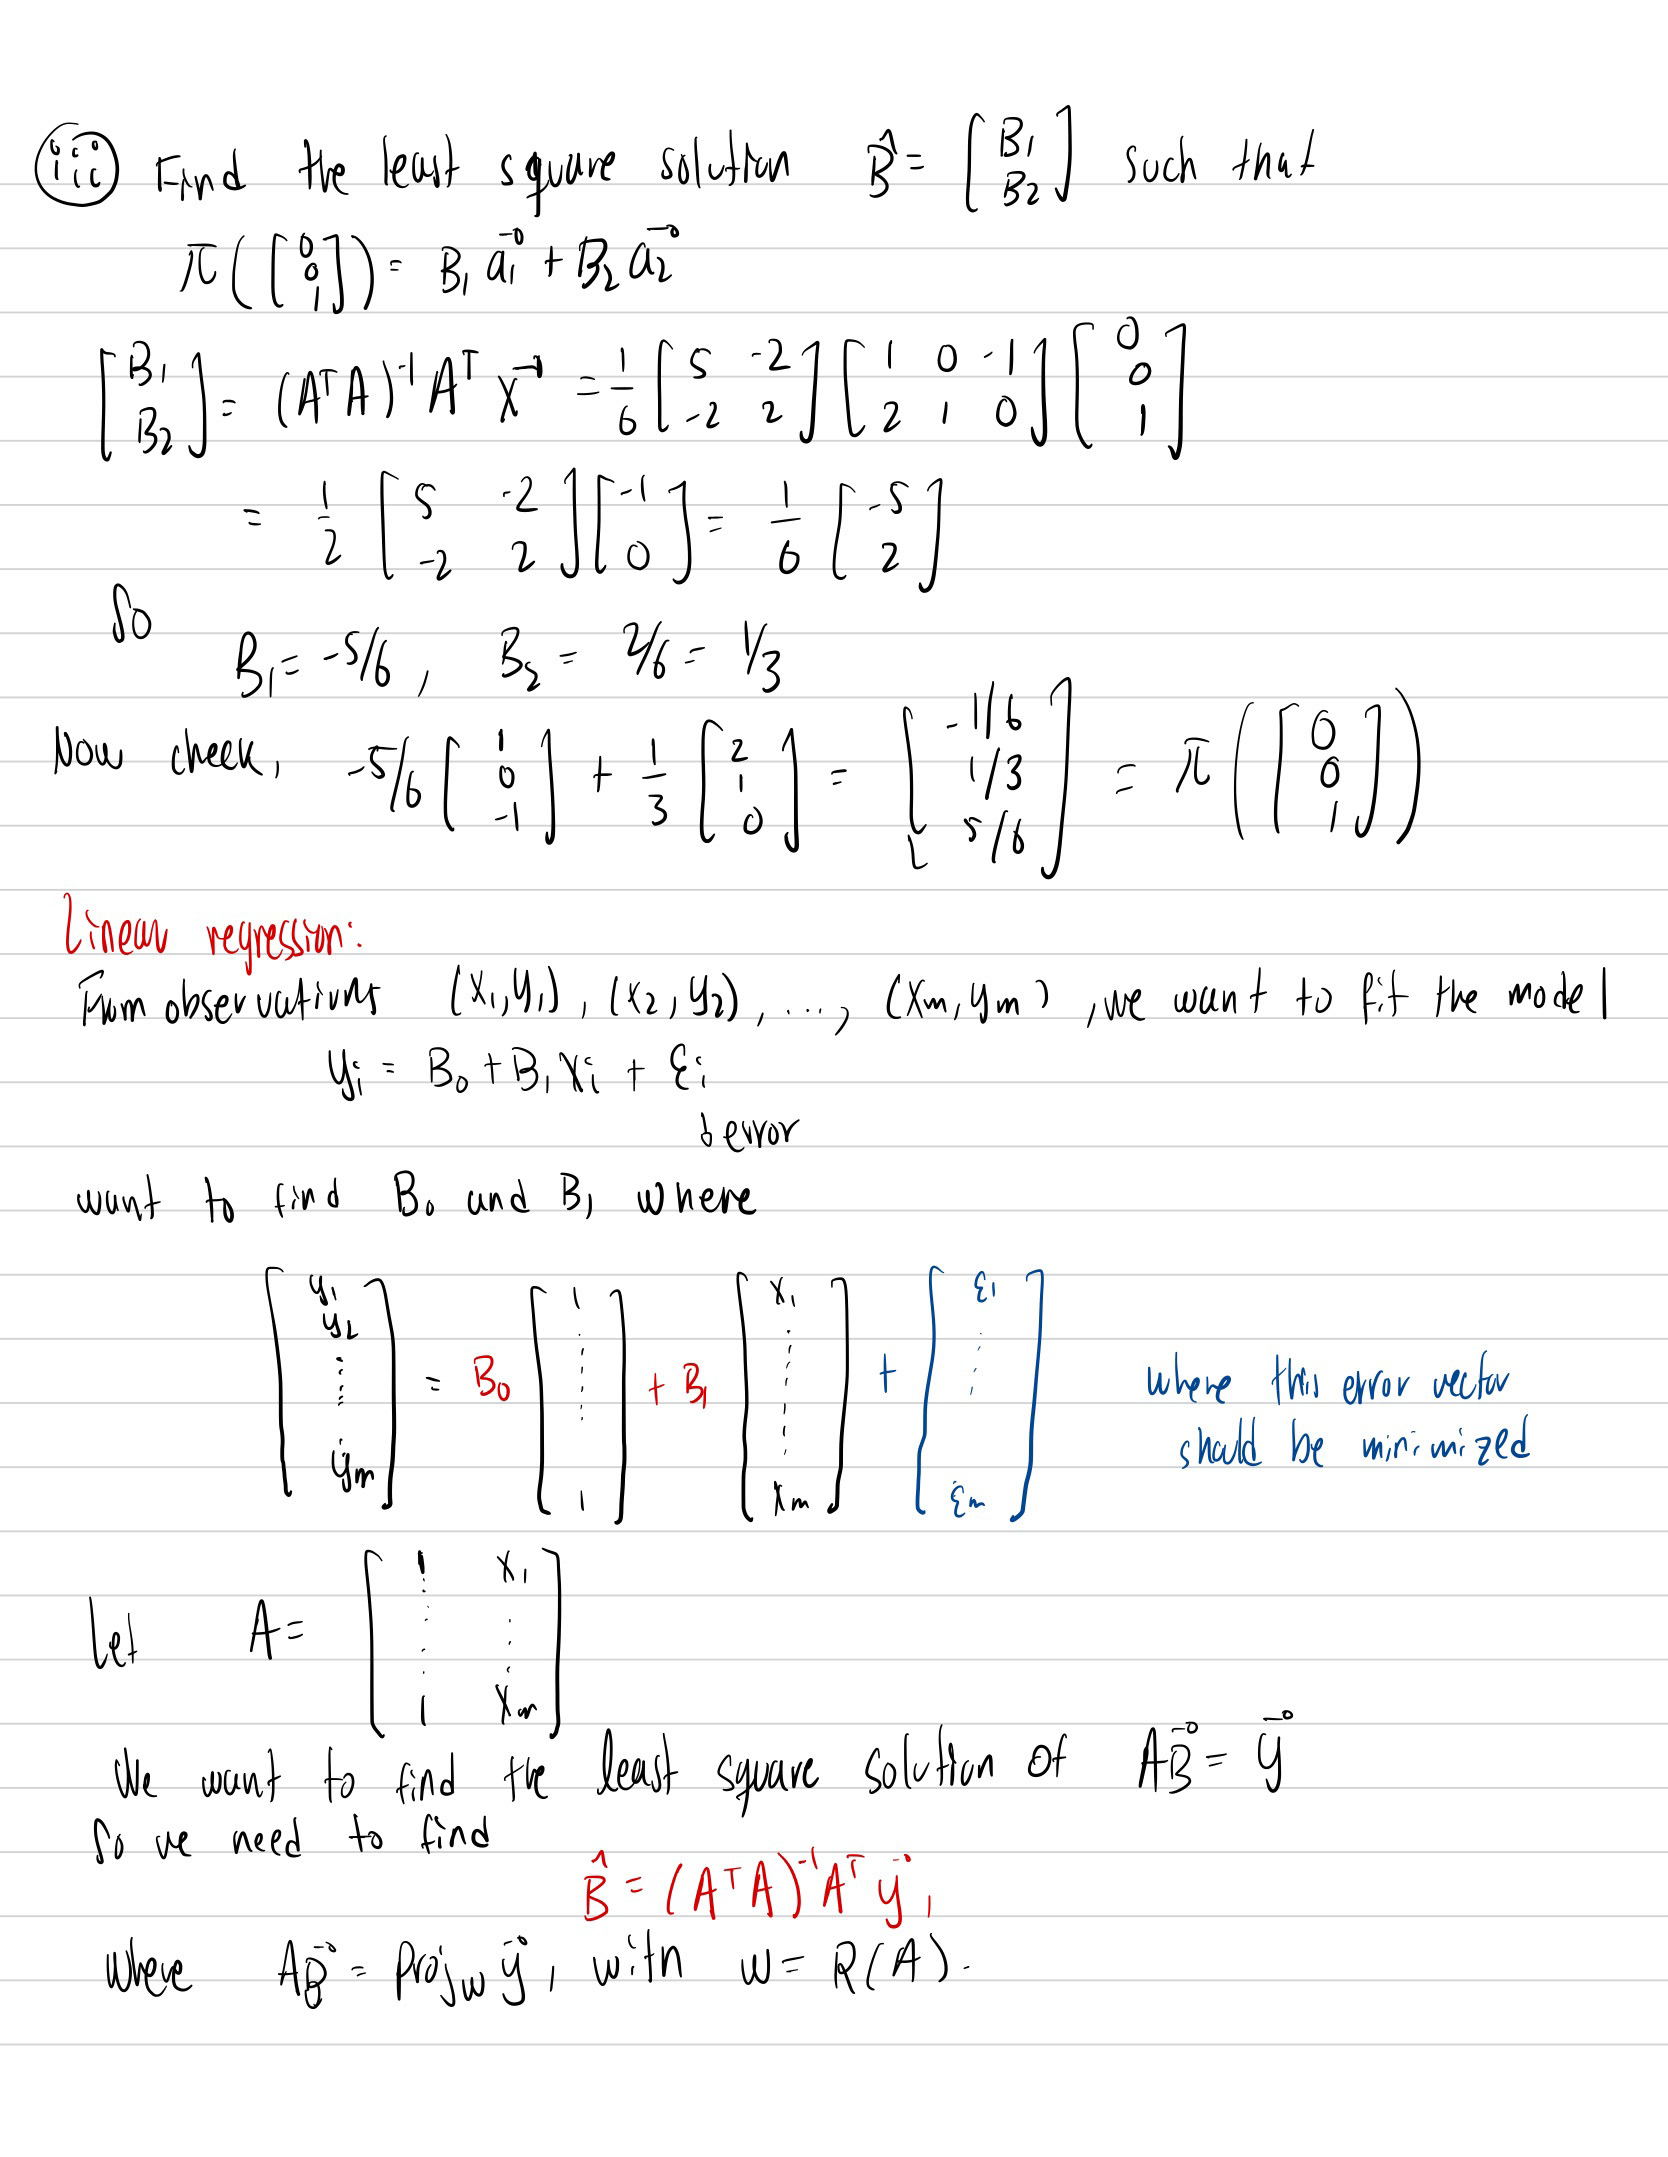 (iii) Find the least square solution B̂ = [B₁ B₂] such that
π([0 0 1]) = B₁ a₁ + B₂ a₂
[B₁ B₂] = (AᵀA)⁻¹ Aᵀ x = 1/6 [5 -2; -2 2] [1 0 -1; 2 1 0] [0 0 1]
= 1/2 [5 -2; -2 2] [-1 0] = 1/6 [-5 2]
So
B₁ = -5/6, B₂ = 2/6 = 1/3
Now check, -5/6 [1 0 -1] + 1/3 [2 1 0] = [-1/6 1/3 5/6] = π([0 0 1])
Linear regression:
From observations (x₁,y₁), (x₂,y₂), ..., (xm,ym), we want to fit the model
yᵢ = B₀ + B₁xᵢ + εᵢ
↓ error
want to find B₀ and B₁ where
[y₁ y₂ ⋮ ym] = B₀ [1 ⋮ 1] + B₁ [x₁ ⋮ xm] + [ε₁ ⋮ εm] where this error vector
should be minimized
Let A = [1 x₁; ⋮ ⋮; 1 xm]
We want to find the least square solution of AB⃗ = y⃗
So we need to find
B̂ = (AᵀA)⁻¹Aᵀ y⃗,
where AB⃗ = Projw y⃗, with w = R(A).